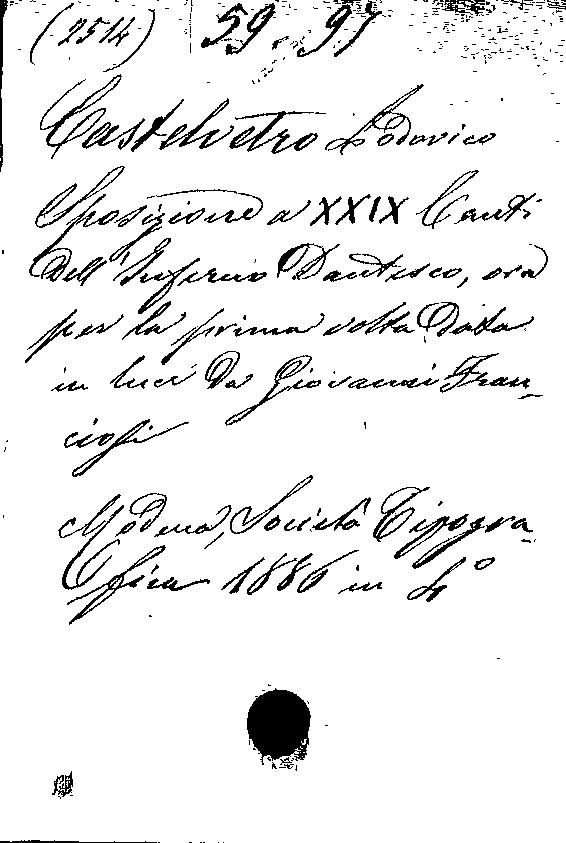 (2514) 59.-97
Castelvetro Lodovico
Sposizione a XXIX Canti
dell'Inferno Dantesco, ora
per la prima volta data
in luce da Giovanni Fran-
ciosi
Modena, Società Tipogra-
fica 1886 in 4°